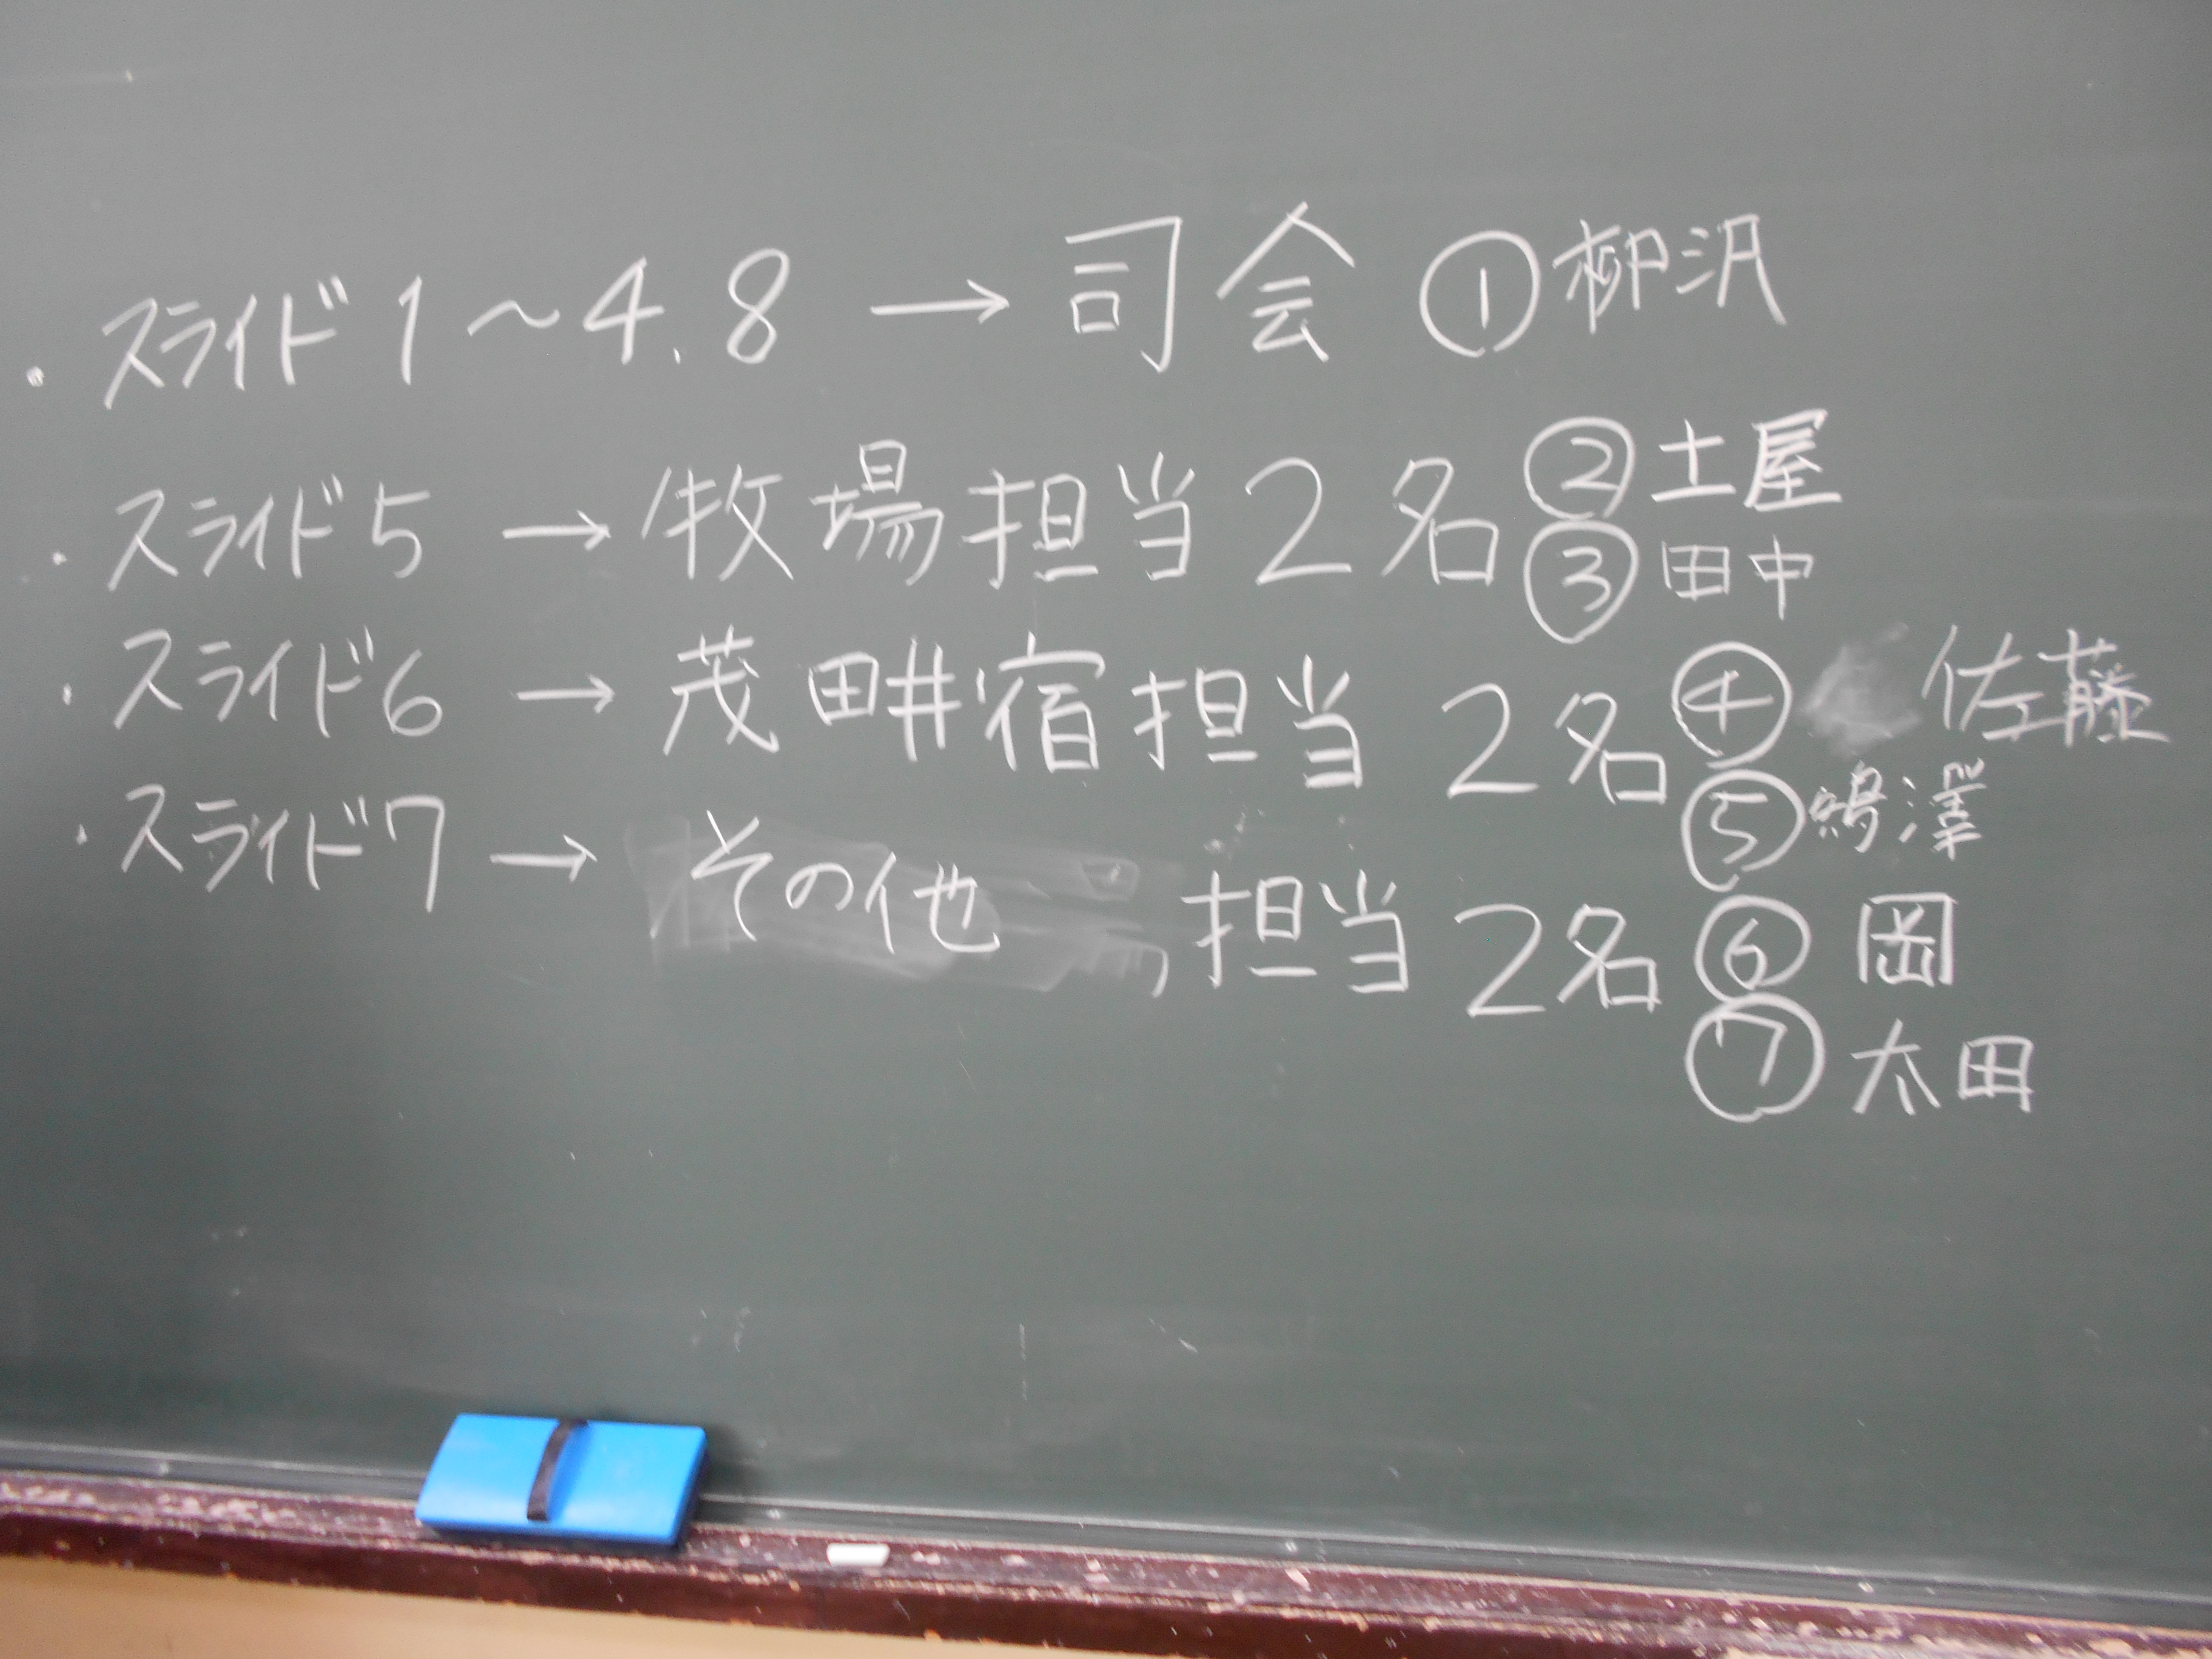 ・スライド1〜4.8 → 司会 ①柳沢
・スライド5 → 牧場担当2名 ②土屋
③田中
・スライド6 → 茂田井宿担当 2名 ④ 佐藤
⑤嶋澤
・スライド7 → その他 担当 2名 ⑥ 岡
⑦ 太田